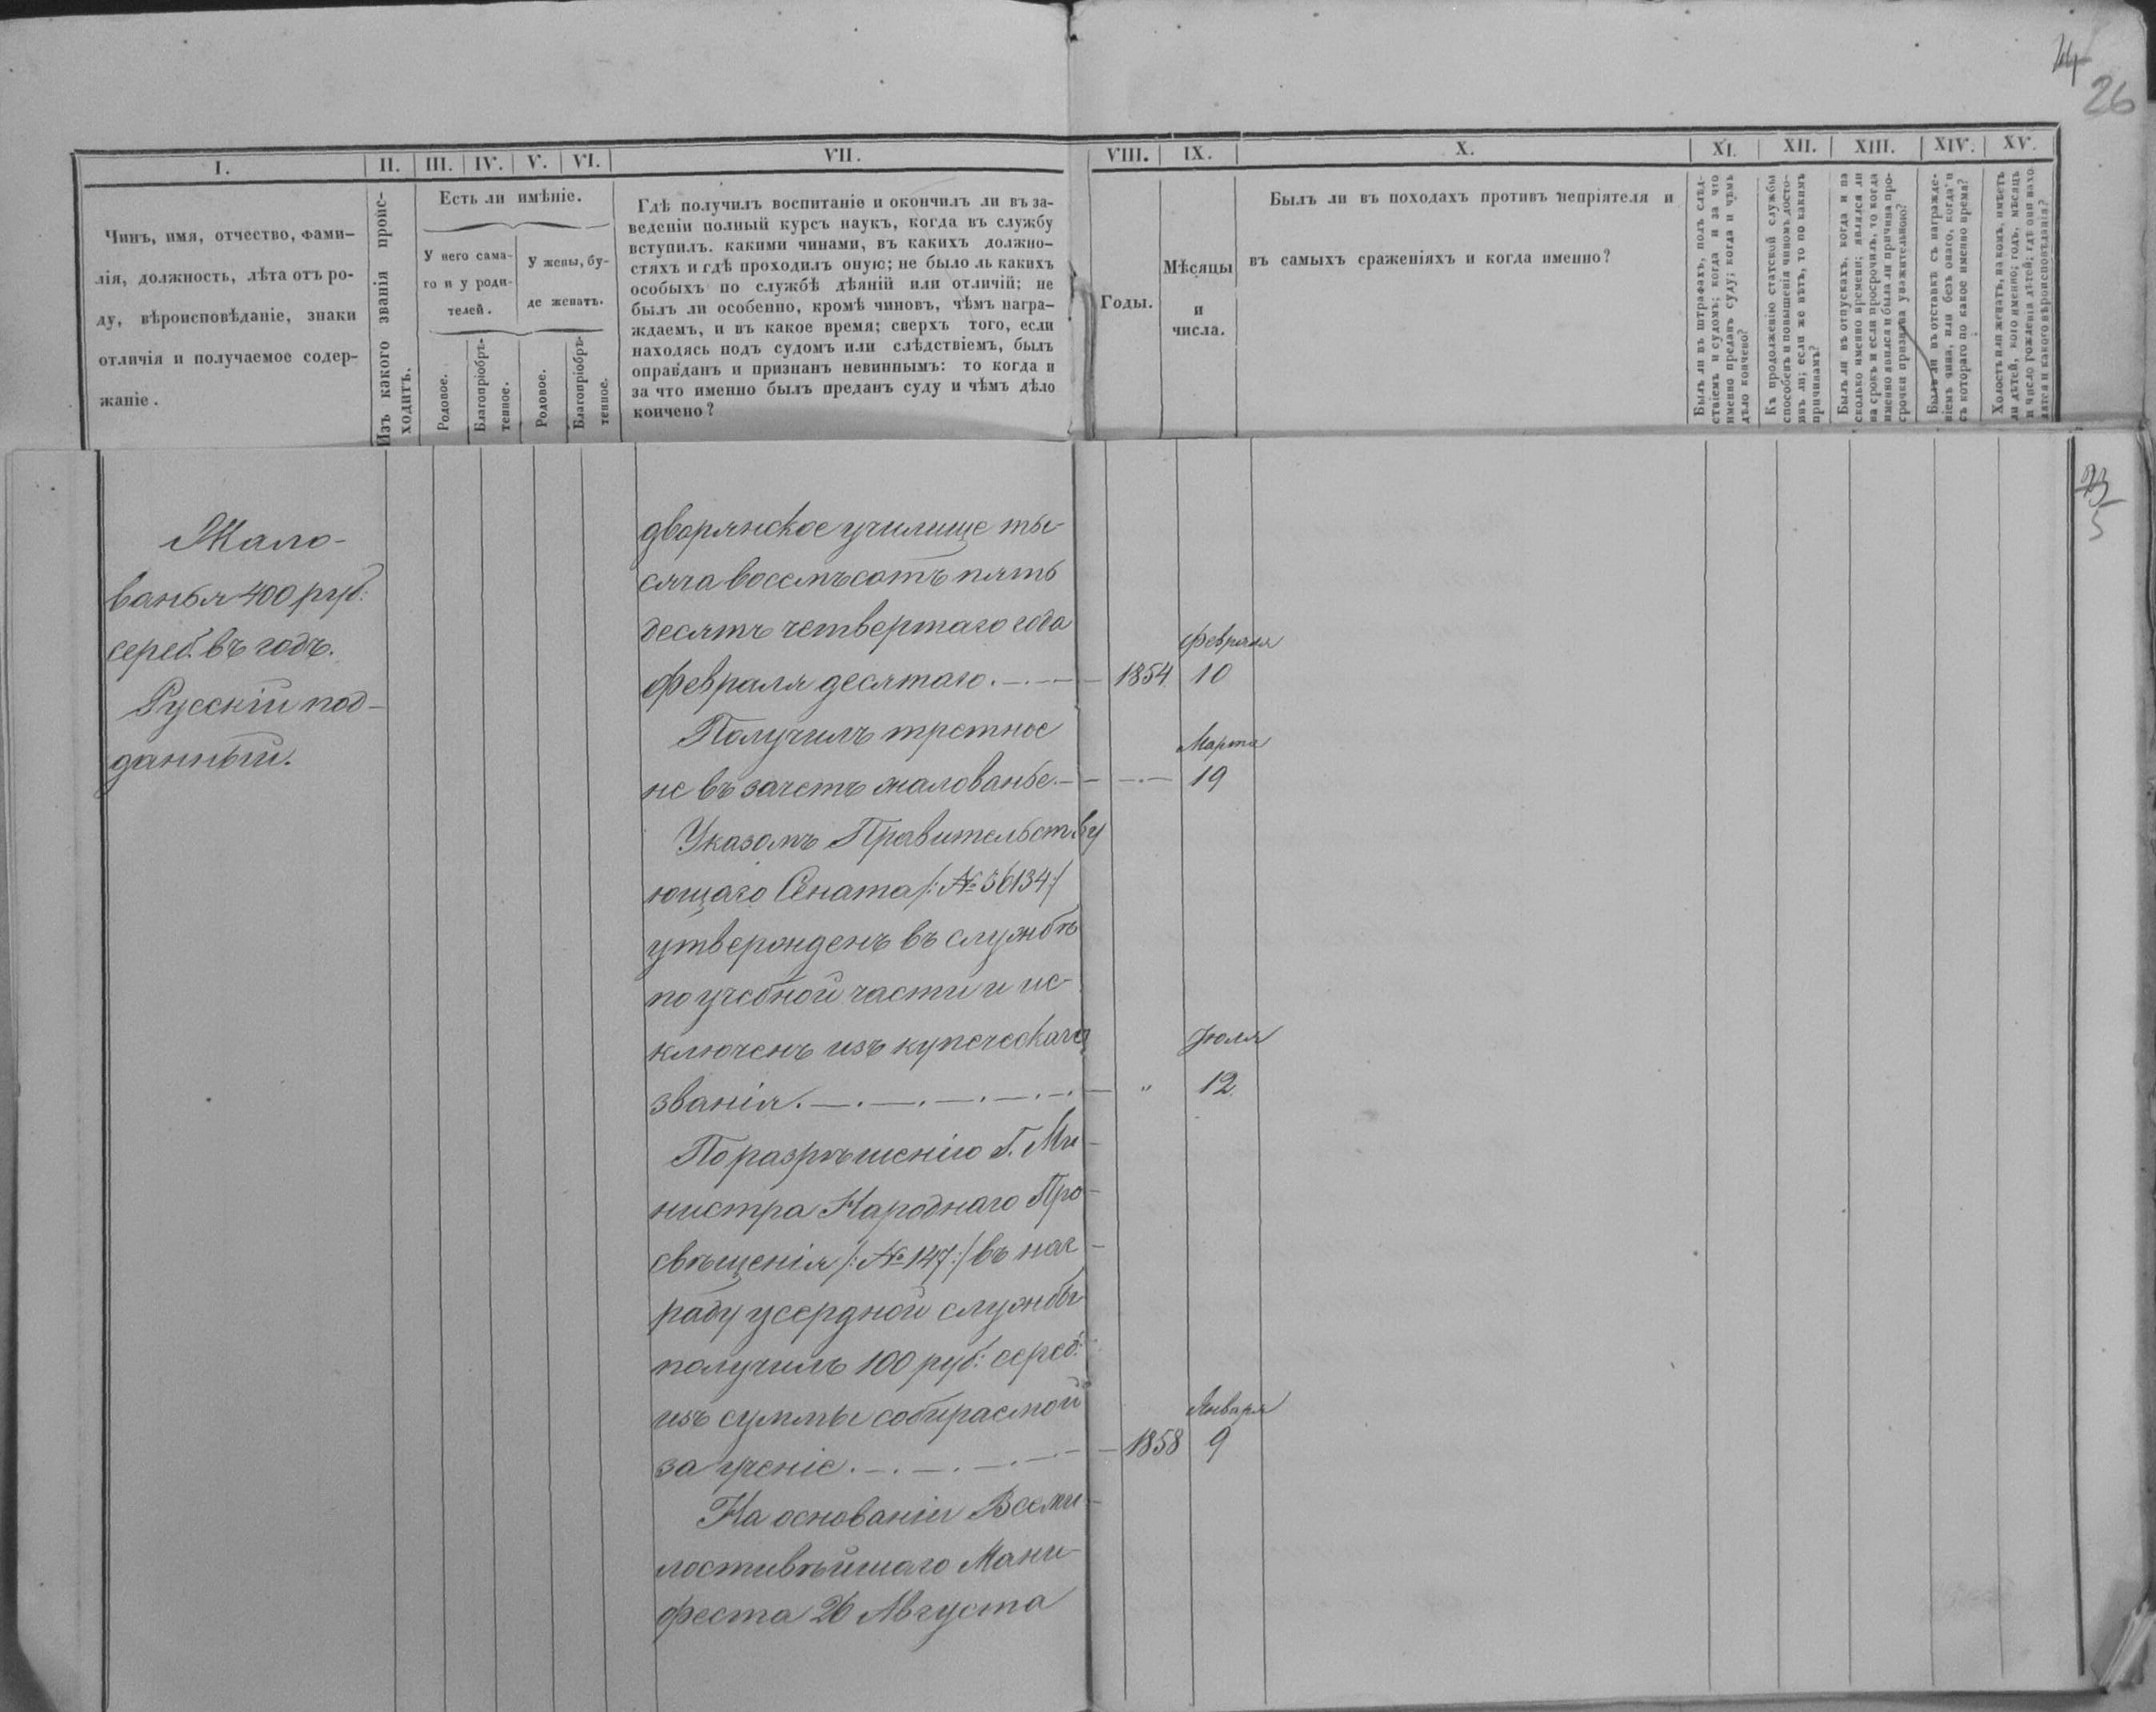 14
26
I. II. III. IV. V. VI. VII. VIII. IX. X. XI. XII. XIII. XIV. XV.
Чинъ, имя, отчество, фами-
лія, должность, лѣта отъ ро-
ду, вѣроисповѣданіе, знаки
отличія и получаемое содер-
жаніе.
Изъ какого званія проис-
ходитъ.
Есть ли имѣніе.
У него сама-
го и у роди-
телей.
У жены, бу-
де женатъ.
Родовое.
Благопріобрѣ-
тенное.
Родовое.
Благопріобрѣ-
тенное.
Гдѣ получилъ воспитаніе и окончилъ ли въ за-
веденіи полный курсъ наукъ, когда въ службу
вступилъ. какими чинами, въ какихъ должно-
стяхъ и гдѣ проходилъ оную; не было ль какихъ
особыхъ по службѣ дѣяній или отличій; не
былъ ли особенно, кромѣ чиновъ, чѣмъ награ-
ждаемъ, и въ какое время; сверхъ того, если
находясь подъ судомъ или слѣдствіемъ, былъ
оправданъ и признанъ невиннымъ: то когда и
за что именно былъ преданъ суду и чѣмъ дѣло
кончено?
Годы.
Мѣсяцы
и
числа.
Былъ ли въ походахъ противъ непріятеля и
въ самыхъ сраженіяхъ и когда именно?
Былъ ли въ штрафахъ, подъ слѣд-
ствіемъ и судомъ; когда и за что
именно преданъ суду; когда и чѣмъ
дѣло кончено?
Къ продолженію статской службы
способенъ и повышенія чиномъ досто-
инъ ли; если же нѣтъ, то по какимъ
причинамъ?
Былъ ли въ отпускахъ, когда и на
сколько именно времени; являлся ли
на срокъ и если просрочилъ, то когда
именно явился и была ли причина про-
срочки признана уважительною?
Былъ ли въ отставкѣ съ награжде-
ніемъ чина, или безъ онаго, когда и
съ котораго по какое именно время?
Холостъ или женатъ, на комъ, имѣетъ
ли дѣтей, кого именно; годъ, мѣсяцъ
и число рожденія дѣтей; гдѣ они нахо-
дятся и какого вѣроисповѣданія?
Жало-
ванья 400 руб:
сереб. въ годъ.
Русскій под-
данный.
дворянское училище ты-
сяча восемьсотъ пять
десятъ четвертаго года
Февраля
февраля десятаго. 1854 10
Получилъ третное
Марта
не въ зачетъ жалованье. 19
Указомъ Правительству
ющаго Сената /: № 36134 :/
утвержденъ въ службѣ
по учебной части и ис-
ключенъ изъ купеческаго
Іюля
званія. " 12
По разрѣшенію Г. Ми-
нистра Народнаго Про-
свѣщенія /: № 147 :/ въ наг-
раду усердной службы
получилъ 100 руб: сереб:
изъ суммы собираемой
Января
за ученіе. 1858 9
На основаніи Всеми-
лостивѣйшаго Мани-
феста 26 Августа